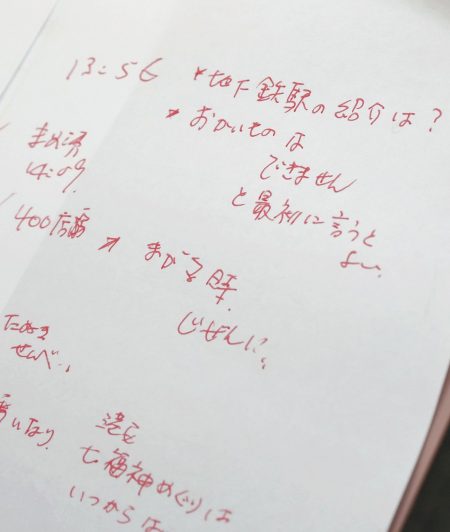 13:56 *地下鉄駅の紹介は?
*おかいものは
できません
と最初に言うと
よい。
400店舗
*まがる時
じぜんに。
たぬき
せんべい
港区
七福神めぐりは
いつからは